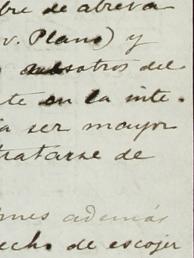 bre de abreva
v. Plano) y
nosotros del
te en la inte-
ia ser mayor
tratarse de
mes además
echo de escojer